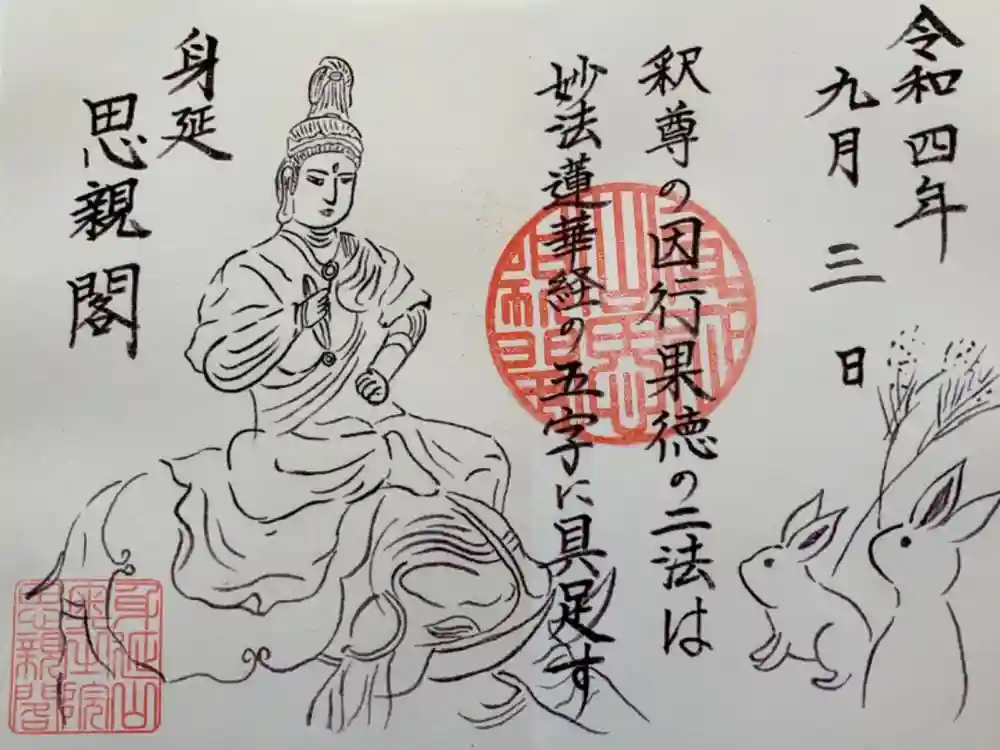 令和四年
九月三日
釈尊の因行果徳の二法は
妙法蓮華経の五字に具足す
身延
思親閣
身延山
奥之院
思親閣